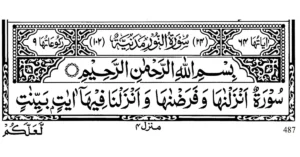 اٰیَاتُهَا ۶۴ (۲۴) سُوْرَةُ النُّوْرِ مَدَنِیَّةٌ (۱۰۲) رُكُوْعَاتُهَا ۹
بِسْمِ اللّٰهِ الرَّحْمٰنِ الرَّحِیْمِ
سُوْرَةٌ اَنْزَلْنٰهَا وَ فَرَضْنٰهَا وَ اَنْزَلْنَا فِیْهَاۤ اٰیٰتٍۭ بَیِّنٰتٍ
لَّعَلَّكُمْ منزل ۴ 487